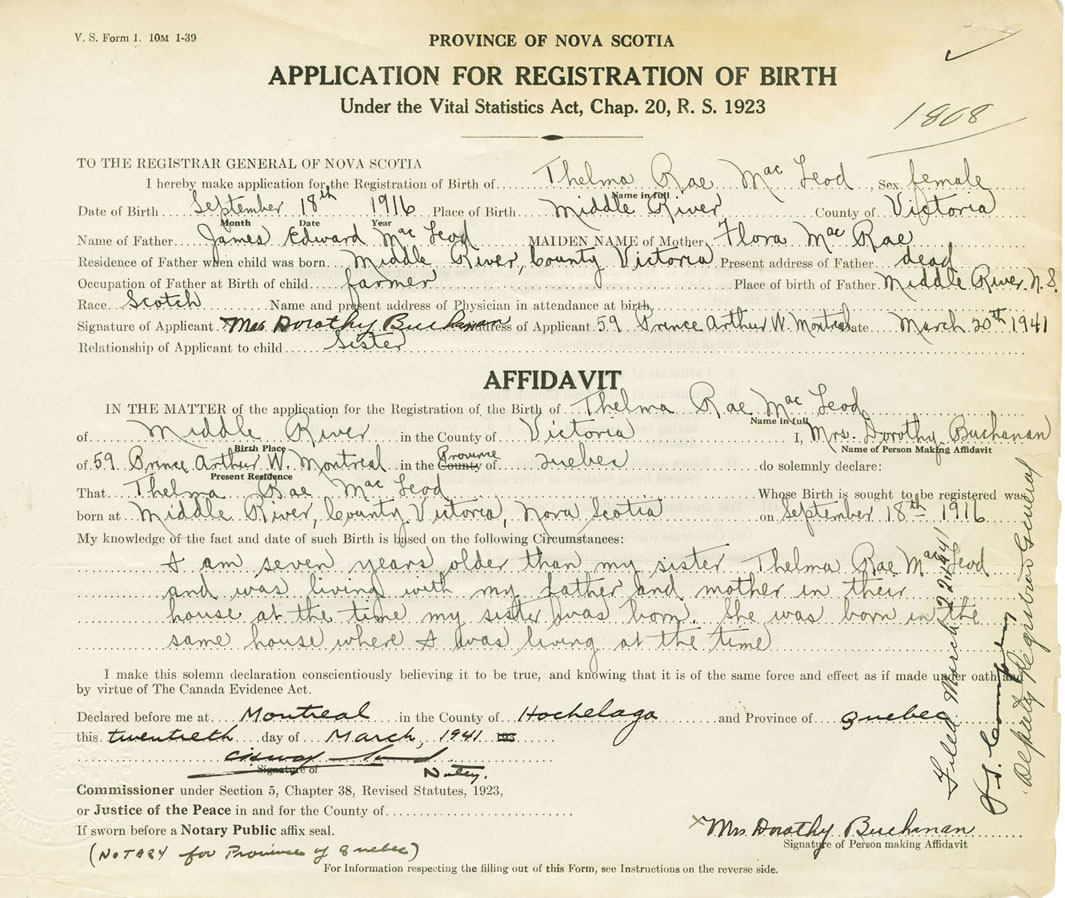 V. S. Form 1. 10M 1-39
PROVINCE OF NOVA SCOTIA
APPLICATION FOR REGISTRATION OF BIRTH
Under the Vital Statistics Act, Chap. 20, R. S. 1923
1808
TO THE REGISTRAR GENERAL OF NOVA SCOTIA
I hereby make application for the Registration of Birth of Thelma Rae MacLeod Sex female
Name in full
Date of Birth September 18th 1916 Place of Birth Middle River County of Victoria
Month Date Year
Name of Father James Edward MacLeod MAIDEN NAME of Mother Flora MacRae
Residence of Father when child was born Middle River, County Victoria Present address of Father dead
Occupation of Father at Birth of child farmer Place of birth of Father Middle River. N.S.
Race Scotch Name and present address of Physician in attendance at birth
Signature of Applicant Mrs Dorothy Buchanan Address of Applicant 59 Prince Arthur W. Montreal Date March 20th 1941
Relationship of Applicant to child Sister
AFFIDAVIT
IN THE MATTER of the application for the Registration of the Birth of Thelma Rae MacLeod
Name in full
of Middle River in the County of Victoria I, Mrs. Dorothy Buchanan
Birth Place Name of Person Making Affidavit
of 59 Prince Arthur W. Montreal in the County Province of Quebec do solemnly declare:
Present Residence
That Thelma Rae MacLeod Whose Birth is sought to be registered was
born at Middle River, County Victoria, Nova Scotia on September 18th 1916
My knowledge of the fact and date of such Birth is based on the following Circumstances:
I am seven years older than my sister Thelma Rae MacLeod
and was living with my father and mother in their
house at the time my sister was born. She was born in the
same house where I was living at the time
I make this solemn declaration conscientiously believing it to be true, and knowing that it is of the same force and effect as if made under oath and
by virtue of The Canada Evidence Act.
Declared before me at Montreal in the County of Hochelaga and Province of Quebec
this twentieth day of March, 1941
Signature of Notary.
Commissioner under Section 5, Chapter 38, Revised Statutes, 1923,
or Justice of the Peace in and for the County of
If sworn before a Notary Public affix seal.
(NOTARY for Province of Quebec)
Mrs. Dorothy Buchanan
Signature of Person making Affidavit
For Information respecting the filling out of this Form, see Instructions on the reverse side.
Filed March 22 1941
Deputy Registrar General